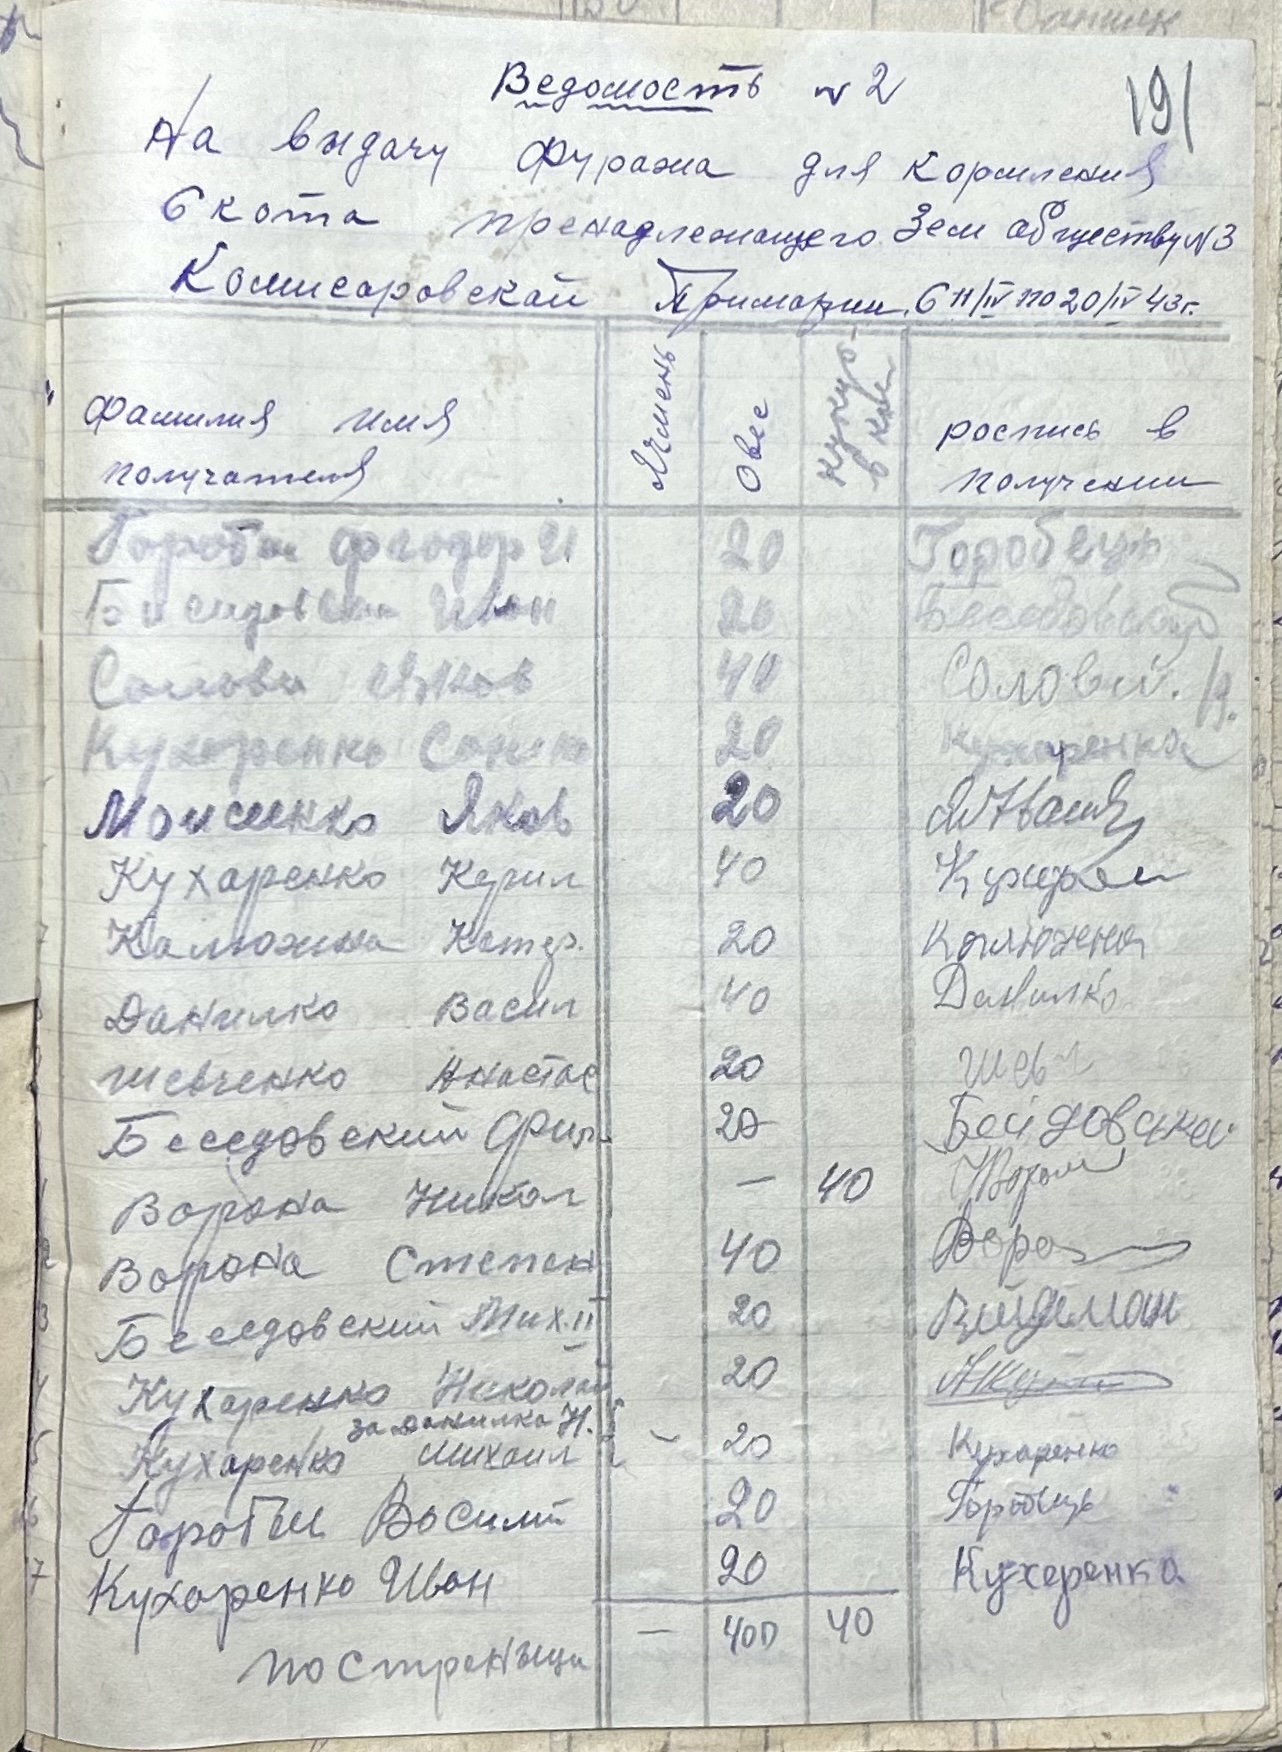 191
Ведомость № 2
На выдачу фуража для кормления
Скота пренадлежащего Зем обществу № 3
Комисаровской Примарии. С 11/IV по 20/IV 43 г.
фамилия имя получателя Ячмень Овес в роспись в получении
Горобец Фгодор И. 20 Горобець
Иван 20 Беседовский
Соловей Яков 40 Соловей. Я.
Кухаренко 20 Кухаренко
Моисенко Яков 20
Кухаренко Кирил 40
7 Калюжна Катер. 20 Калюжная
Данилко Васил 40 Данилко
Шевченко Анастас 20 Шев
Беседовский Фил 20
Ворона Никол — 40
2 Ворона Степен 40 Воро
3 Беседовский Мих. II 20 Вейдеман
4 Кухаренко Николай 20
за Данилка Н.
5 Кухаренко Михаил - 20 Кухаренко
6 Горобец Василий 20 Горобець
7 Кухаренко Иван 20 Кухеренко
по стренице — 400 40